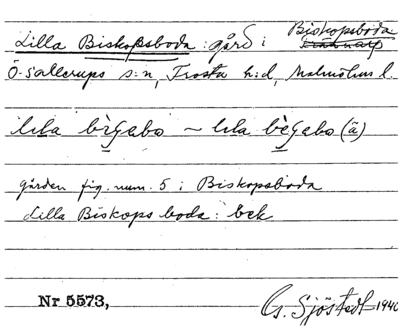 Lilla Biskopsboda: gård i Biskopsboda
Ö. Sallerups s:n, Frosta h:d, Malmöhus l.
lıla bèɡabo ~ lıla bèɡabo (ä)
gården fig. num. 5 i Biskopsboda
Lilla Biskops boda: Eck
Nr 5573,
G. Sjöstedt 1940